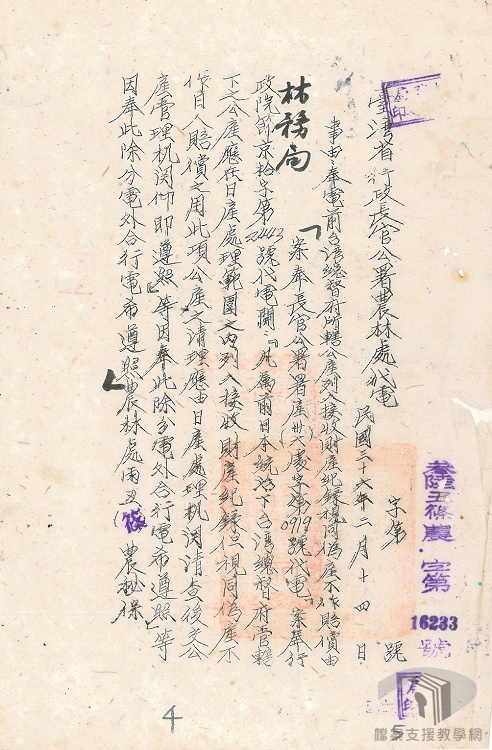 臺灣省行政長官公署農林處代電
民國三十六年二月十四日
字第 號
叁陸丑篠農 字第16233號
事由：奉電前台灣總督府所轄公產列入接收財產紀錄視同偽產不作賠償由
林務局
「案奉長官公署署產卅六處字第0919號代電「案奉行
政院節京拾字第2443號代電開：『凡屬前日本統治下台灣總督府管轄
下之公產應在日產處理範圍之內列入接收財產紀錄但視同偽產不
作日人賠償之用此項公產之清理應由日產處理機関清查後交公
產管理机関仰即遵照』等因奉此除分電外合行電希遵照」等
因奉此除分電外合行電希遵照農林處雨丑(篠)農秘保
4
5
檔案支援教學網